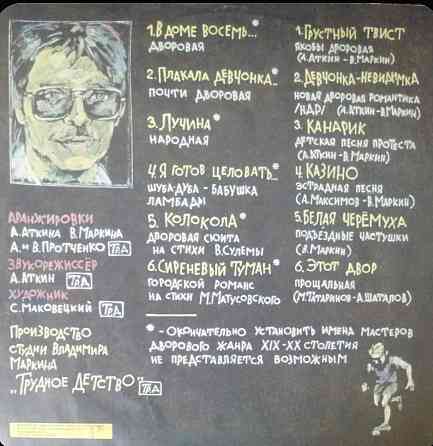 1. В ДОМЕ ВОСЕМЬ...*
ДВОРОВАЯ
2. ПЛАКАЛА ДЕВЧОНКА...*
ПОЧТИ ДВОРОВАЯ
3. ЛУЧИНА*
НАРОДНАЯ
4. Я ГОТОВ ЦЕЛОВАТЬ...*
ШУБА-ДУБА - БАБУШКА
ЛАМБАДЫ
5. КОЛОКОЛА*
ДВОРОВАЯ СЮИТА
НА СТИХИ В.СУЛЕМЫ
6. СИРЕНЕВЫЙ ТУМАН*
ГОРОДСКОЙ РОМАНС
НА СТИХИ М.МАТУСОВСКОГО
1. ГРУСТНЫЙ ТВИСТ
ЯКОБЫ ДВОРОВАЯ
(А.АТКИН - В.МАРКИН)
2. ДЕВЧОНКА-НЕВИДИМКА
НОВАЯ ДВОРОВАЯ РОМАНТИКА
/НДР/ (А.АТКИН - В.МАРКИН)
3. КАНАРИК
ДЕТСКАЯ ПЕСНЯ ПРОТЕСТА
(А.АТКИН - В.МАРКИН)
4. КАЗИНО
ЭСТРАДНАЯ ПЕСНЯ
(А.МАКСИМОВ - В.МАРКИН)
5. БЕЛАЯ ЧЕРЁМУХА
ПОДЪЕЗДНЫЕ ЧАСТУШКИ
(В.МАРКИН)
6. ЭТОТ ДВОР
ПРОЩАЛЬНАЯ
(М.ТАТАРИНОВ - А.ШАТАЛОВ)
АРАНЖИРОВКИ
А.АТКИНА В.МАРКИНА
А. И В. ПРОТЧЕНКО ТРД
ЗВУКОРЕЖИССЁР
А.АТКИН ТРД
ХУДОЖНИК
С.МАКОВЕЦКИЙ ТРД
ПРОИЗВОДСТВО
СТУДИИ ВЛАДИМИРА
МАРКИНА
„ТРУДНОЕ ДЕТСТВО" ТРД
* - ОКОНЧАТЕЛЬНО УСТАНОВИТЬ ИМЕНА МАСТЕРОВ
ДВОРОВОГО ЖАНРА XIX-XX СТОЛЕТИЯ
НЕ ПРЕДСТАВЛЯЕТСЯ ВОЗМОЖНЫМ